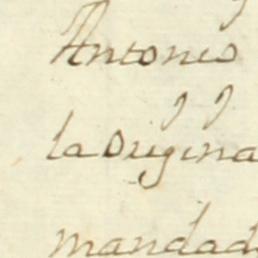 Antonio
la Origina
mandad